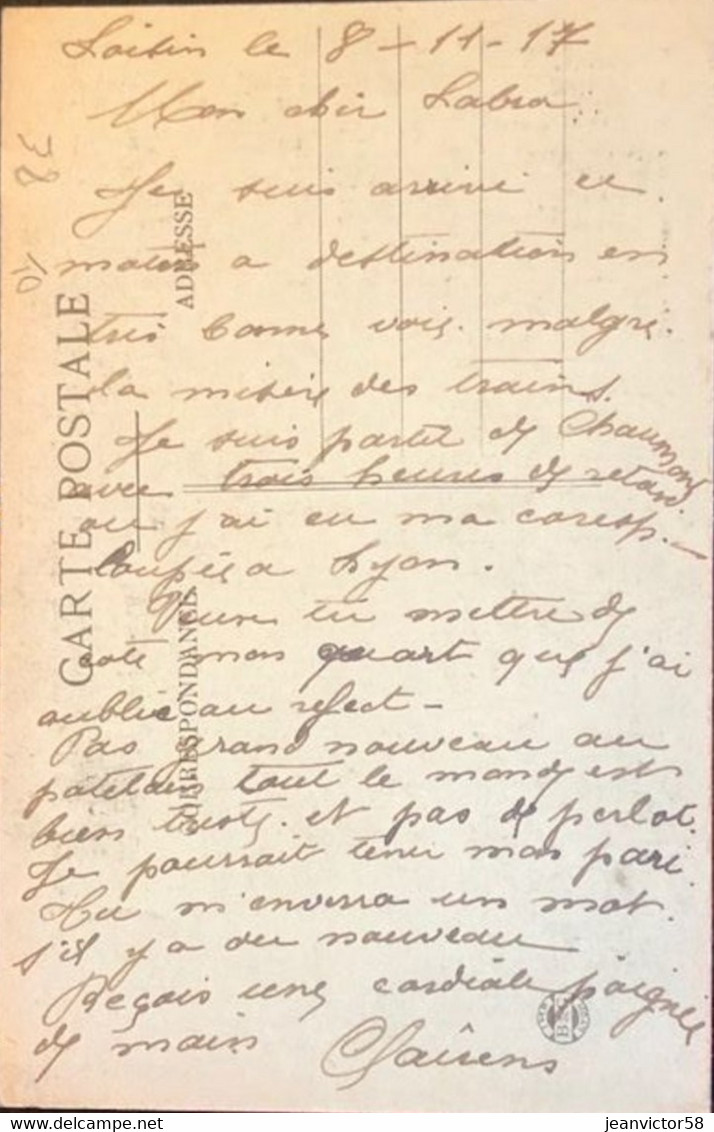 le 8 - 11 - 17
Mon cher Labro
Je suis arrivé ce
matin a destination en
tres bonne voie. malgré.
la misère des trains.
Je suis partit de Chaumont
avec trois heures de retard.
ou j'ai eu ma coresp.-
loupée a Lyon.
Veux tu mettre de
coté mon quart que j'ai
oublié au refect-
Pas grand nouveau au
patelin tout le monde est
bien triste. et pas de perlot.
Je pourrait tenir mon pari
Tu m'enverra un mot.
s'il y a du nouveau
Reçois une cordiale poignée
de main
CARTE POSTALE
CORRESPONDANCE
ADRESSE
jeanvictor58